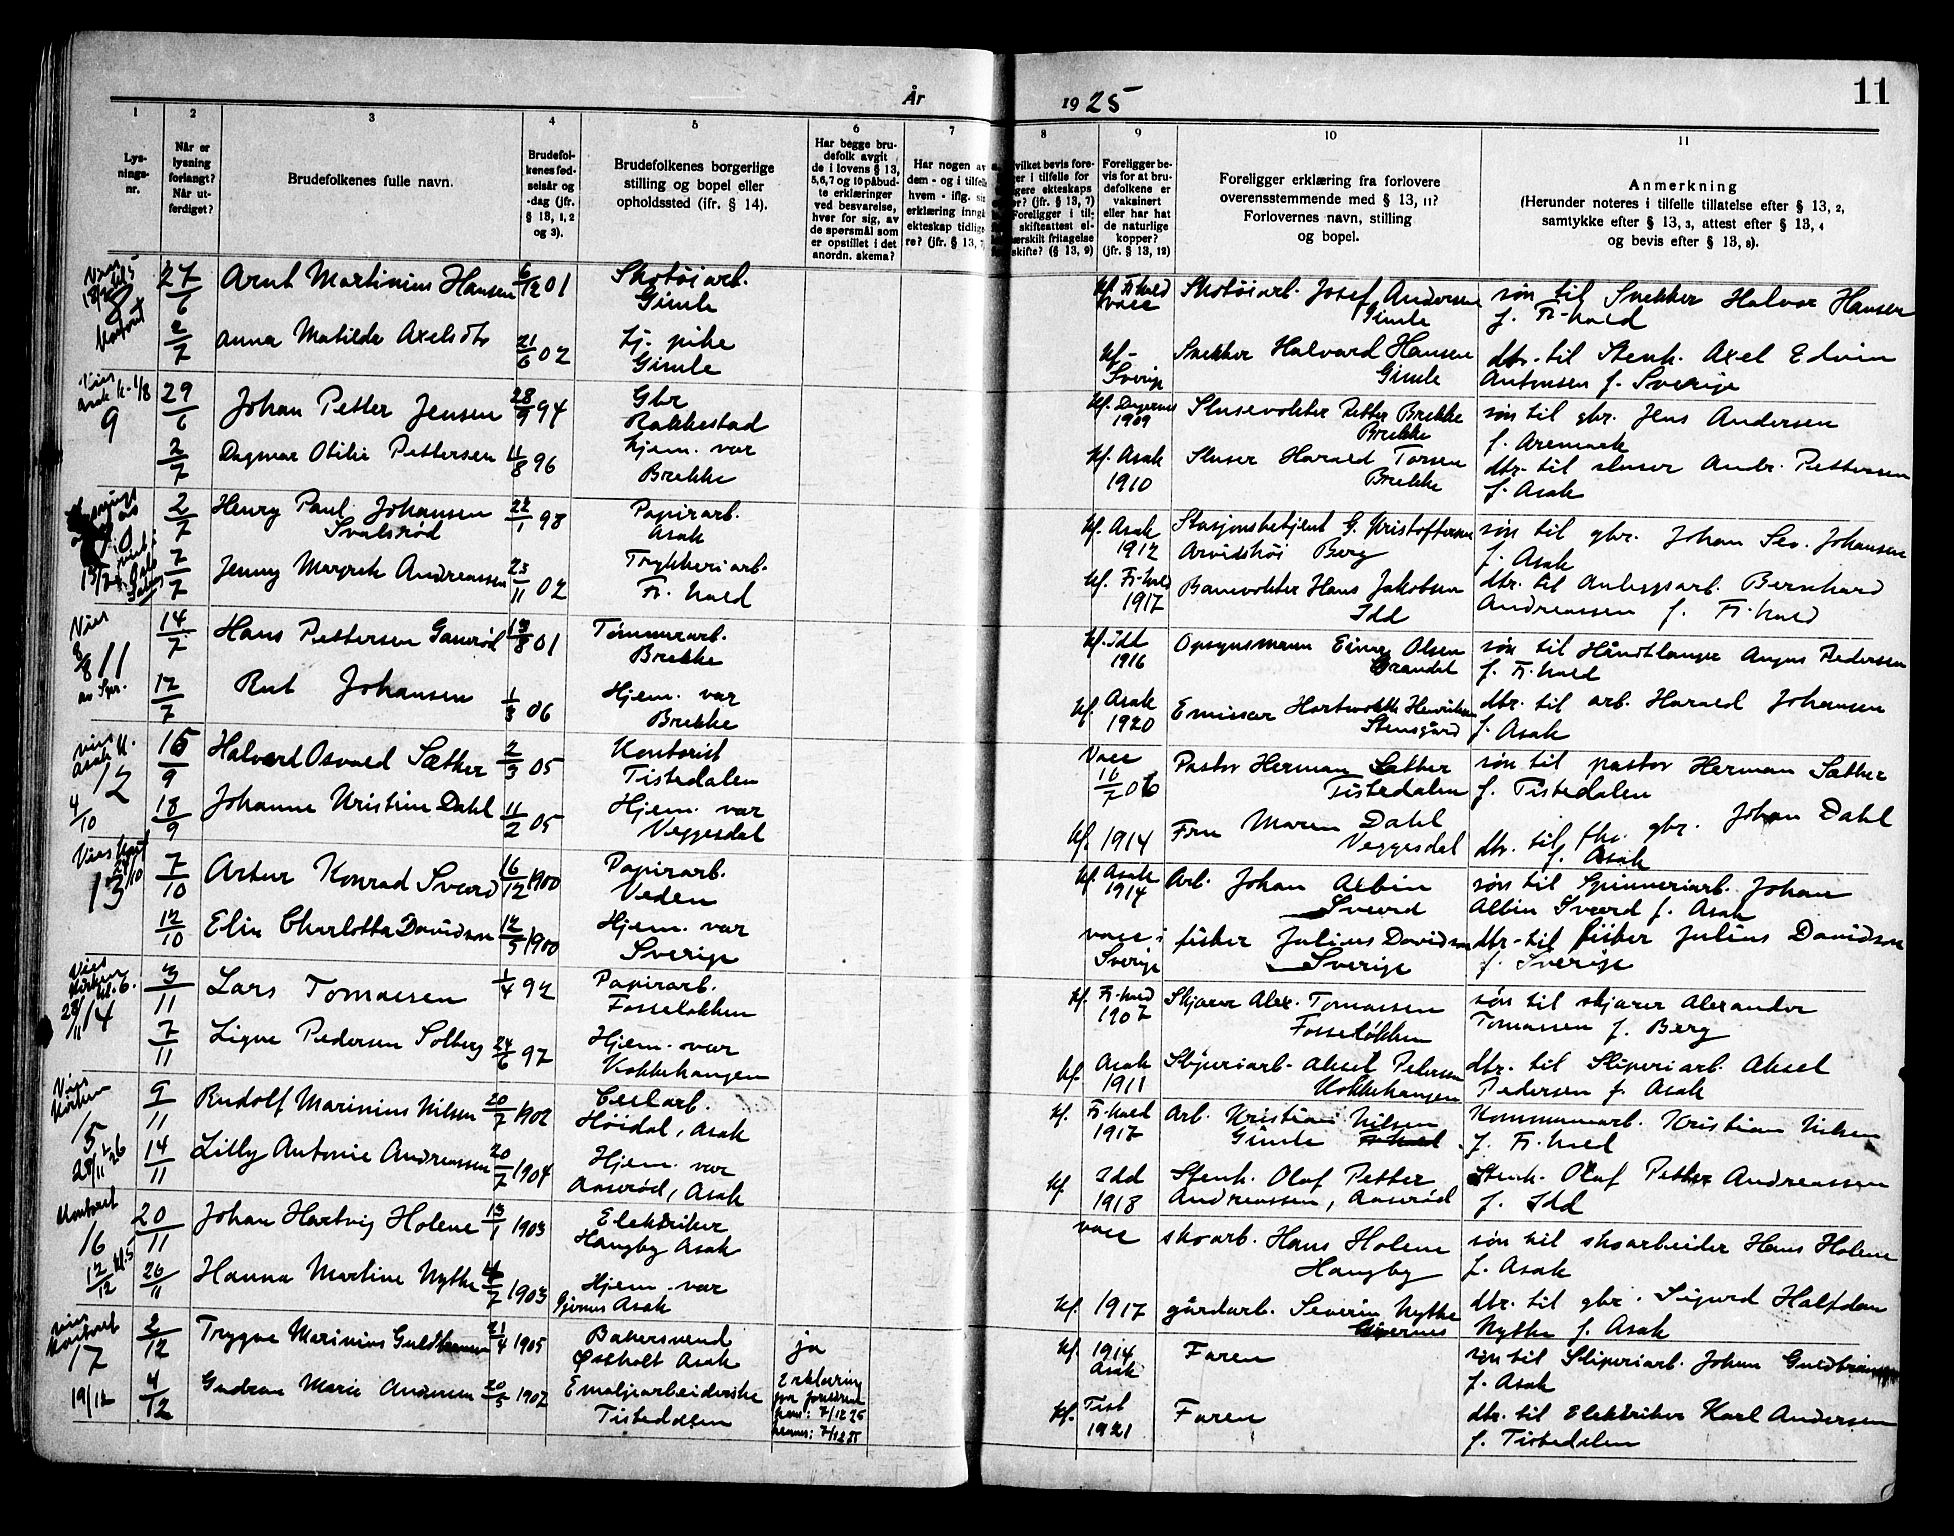 11
År
1925
1
2
3
4
5
6
7
8
9
10
11
Lys-
nings-
nr.
Når er
lysning
forlangt?
Når ut-
ferdiget?
Brudefolkenes fulle navn.
Brudefol-
kenes fød-
selsår og
-dag (jfr.
§ 13, 1, 2
og 3).
Brudefolkenes borgerlige
stilling og bopel eller
opholdssted (ifr. § 14).
Har begge bru-
defolk avgit
de i lovens § 13,
5,6,7 og 10 påbud-
te erklæringer
ved besvarelse,
hver for sig, av
de spørsmål som
er opstillet i det
anordn. skema?
Har nogen av
dem - og i tilfelle
hvem - iflg.
erklæring inngå
ekteskap tidlige-
re? (jfr. § 13, 7
vilket bevis fore-
ger i tilfelle for
gere ekteskaps
or? (jfr. § 13, 7)
Foreligger i til-
skifteattest el-
ærskilt fritagelse
skifte? (§ 13, 9)
Foreligger be-
vis for at bru-
defolkene er
vaksinert
eller har hat
de naturlige
kopper?
(jfr. § 13, 12)
Foreligger erklæring fra forlovere
overensstemmende med § 13, 11?
Forlovernes navn, stilling
og bopel.
Anmerkning
(Herunder noteres i tilfelle tillatelse efter § 13, 2,
samtykke efter § 13, 3, attest efter § 13, 4
og bevis efter § 13, 8).
8
27/6 Arnt Martinius Hansen 6/12 01 Skotøiarb.
Gimle
kf. Fr.hald
vacc
Skotøiarb. Josef Andersen
Gimle
søn til Snekker Halvor Hansen
f. Fr-hald
2/7 Anna Matilde Axelsdtr 21/6 02 tj. pike
Gimle
kf-
Sverige
Snekker Halvard Hansen
Gimle
dtr. til Stenh. Axel Edvin
Antonsen f. Sverige
Asak k. 1/8
9
29/6 Johan Petter Jensen 28/9 94 Gbr
Rakkestad
kf.
1909
Slusevokter Petter Brekke
Brekke
søn til gbr. Jens Andersen
f. Aremark
2/7 Dagmar Otilie Pettersen 11/8 96 hjem. vær
Brekke
kf. Asak
1910
Sluser Harald Torsen
Brekke
dtr. til sluser Andr. Pettersen
f. Asak
2/7 Henry Paul Johansen
Svalsrød
22/1 98 Papirarb.
Asak
kf. Asak
1912
Stasjonsbetjent G. Kristoffersen
Berg
søn til gbr. Johan Sev. Johansen
f. Asak
7/7 Jenny Margrete Andreassen 23/11 02 Trykkeriarb.
Fr. hald
kf. Fr-hald
1917
Banevokter Hans Jakobsen
Idd
dtr. til Anlegsarb. Bernhard
Andreassen f. Fr.hald
Vies
8/8 11
14/7 Hans Pettersen Gamrød 13/8 01 Tømmerarb.
Brekke
kf. Idd
1916
Opsynsmann Einar Olsen
søn til Håndtlanger August Pedersen
f. Fr.hald
17/7 Rut Johansen 1/3 06 Hjem. vær
Brekke
kf. Asak
1920
Emissær Hartvik Henriksen
Stensgård
dtr. til arb. Harald Johansen
f. Asak
vies
Asak k.
12
4/10
15/9 Halvard Osvald Sæther 2/3 05 Kontorist
Tistedalen
Vacc
16/7 06
Pastor Herman Sæther
Tistedalen
søn til pastor Herman Sæther
f. Tistedalen
18/9 Johanne Kristine Dahl 11/2 05 Hjem. vær
Veggesdal
kf. 1914
Fru Maren Dahl
Veggesdal
dtr. til fhv. gbr. Johan Dahl
f. Asak
13
7/10 Artur Konrad Sværd 16/12 1900 Papirarb.
Veden
kf Asak
1914
Arb. Johan Albin
Sværd
søn til Spinneriarb. Johan
Albin Sværd f. Asak
12/10 Elin Charlotta Davidson 12/5 1900 Hjem. vær
Sverige
vacc i
Sverige
fisker Julius Davidson
Sverige
dtr. til fisker Julius Davidson
f. Sverige
Vies
Kirken
kl. 6.
28/11 14
3/11 Lars Tomassen 1/4 92 Papirarb.
Fosseløkken
kf. Fr-hald
1907
Skjærer Alex. Tomassen
Fosseløkken
søn til skjærer Alexander
Tomassen f. Berg
7/11 Signe Pedersen Solberg 24/6 97 Hjem. vær
Kokkehaugen
kf. Asak
1911
Sliperiarb. Aksel Pedersen
Kokkehaugen
dtr. til Sliperiarb. Aksel
Pedersen f. Asak
Vies
Kirken
15
28/11 26
9/11 Rudolf Marinius Nilsen 20/7 1902 Cellarb.
Høidal, Asak
kf. Fr.hald
1917
Arb. Kristian Nilsen
Gimle Fr.hald
Kommunearb. Kristian Nilsen
f. Fr.hald
14/11 Lilly Antonie Andreassen 20/7 1904 Hjem. vær
Aaserød, Asak
kf Idd
1918
Stenh. Olaf Petter
Andreassen, Aaserød
Stenh. Olaf Petter Andreassen
f. Idd
Kontoret
16
12/12 kl. 5
20/11 Johan Hartvig Holene 13/1 1903 Elektriker
Haugby Asak
vacc
skoarb. Hans Holene
Haugby
søn til skoarbeider Hans Holene
f. Asak
26/11 Hanna Martine Nythe 1903 Hjem. vær
Asak
kf. 1917
gårdarb. Severin Nythe
dtr. til gbr. Sigurd Halfdan
Nythe f. Asak
vies
Kontoret
17
19/12
2/12 Trygve Marinius Guldbransen 21/4 1905 Bakersvend
Østholt Asak
ja
kf 1914
Asak
Faren
søn til Sliperiarb. Johan Guldbransen
f. Asak
4/12 Gudrun Marie Andersen 20/5 1907 Emaljearbeiderske
Tistedalen
Erklæring
hans: 7/12 25
hennes: 7/12 25
kf. Tist
1921
Faren
dtr. til Elektriker Karl Andersen
f. Tistedalen